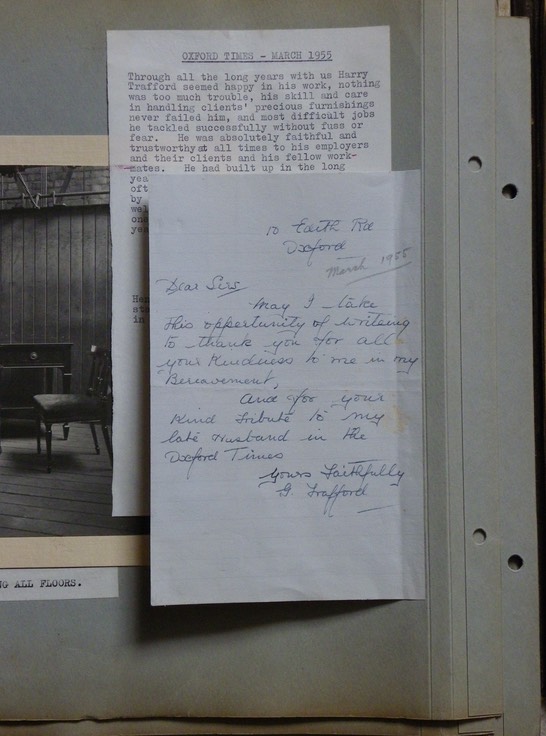 OXFORD TIMES - MARCH 1955
Through all the long years with us Harry
Trafford seemed happy in his work, nothing
was too much trouble, his skill and care
in handling clients' precious furnishings
never failed him, and most difficult jobs
he tackled successfully without fuss or
fear. He was absolutely faithful and
trustworthy at all times to his employers
and their clients and his fellow work-
mates. He had built up in the long
yea
oft
by
wel
one
yea
He
sta
in
10 Edith Rd
Oxford
March 1955
Dear Sirs
May I take
this oppertunity of writeing
to thank you for all
your Kindness to me in my
Bereavement,
And for your
Kind Tribute to my
late Husband in the
Oxford Times
Yours Faithfully
G. Trafford
NG ALL FLOORS.